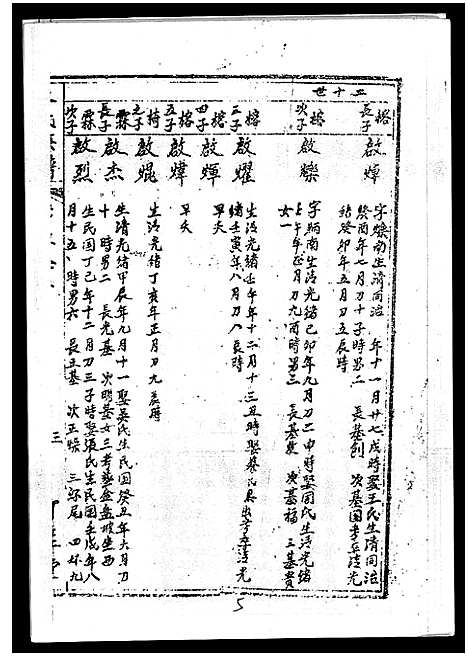 二十世
榕長子
啟煒
字燦南生清同治 年十一月廿七戌時娶王氏生清同治
癸酉年七月初十子時男二 長基創 次基国考卒清光
緒癸卯年五月初五辰時
榕次子
啟爍
字炳南生清光緒己卯年九月初二申時娶周氏生清光緒
午年正月初九酉時男三 長基發 次基福 三基貴
女一
榕三子
啟耀
生清光緒壬午年十二月十三丑時娶蔡氏 考卒清光
緒壬寅年八月初八辰時
榕四子
啟煇
早夭
榕五子
啟
早夭
椅之子
啟焜
生清光緒丁亥年正月初九辰時
霖長子
啟杰
生清光緒甲辰年九月十一娶吴氏生民國癸丑年六月初
十 時男二 長光基 次明基女三考 坐西
霖次子
啟烈
生民国丁巳年十二月初三子時娶張氏生民国壬戌年八
月十五 時男六 長玉基 次玉 三 尾 四 九
三
5